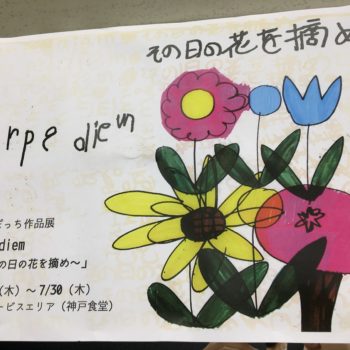 その日の花を摘め
arpe diem
ぼっち作品展
diem
の日の花を摘め～」
（木）～ 7/30（木）
ービスエリア（神戸食堂）